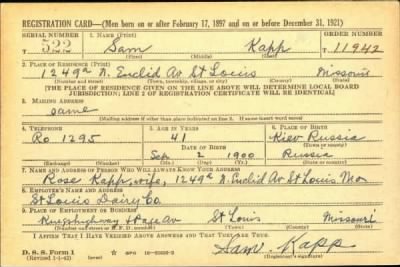 REGISTRATION CARD—(Men born on or after February 17, 1897 and on or before December 31, 1921)
SERIAL NUMBER 1. NAME (Print) ORDER NUMBER
T 522 Sam Kapp T 11942
(First) (Middle) (Last)
2. PLACE OF RESIDENCE (Print)
1249a N. Euclid Av St Louis Missouri
(Number and street) (Town, township, village, or city) (County) (State)
[THE PLACE OF RESIDENCE GIVEN ON THE LINE ABOVE WILL DETERMINE LOCAL BOARD
JURISDICTION; LINE 2 OF REGISTRATION CERTIFICATE WILL BE IDENTICAL]
3. MAILING ADDRESS
same
[Mailing address if other than place indicated on line 2. If same insert word same]
4. TELEPHONE 5. AGE IN YEARS 6. PLACE OF BIRTH
Ro 1295 41 Kiev Russia
DATE OF BIRTH (Town or county)
Sep 2 1900 Russia
(Exchange) (Number) (Mo.) (Day) (Yr.) (State or country)
7. NAME AND ADDRESS OF PERSON WHO WILL ALWAYS KNOW YOUR ADDRESS
Rose Kapp, wife, 1249a N. Euclid Av St Louis Mo
8. EMPLOYER'S NAME AND ADDRESS
St Louis Dairy Co.
9. PLACE OF EMPLOYMENT OR BUSINESS
Kingshighway St Louis Missouri
(Number and street or R. F. D. number) (Town) (County) (State)
I AFFIRM THAT I HAVE VERIFIED ABOVE ANSWERS AND THAT THEY ARE TRUE.
D. S. S. Form 1
(Revised 1-1-42) GPO Sam Kapp
(Registrant's signature)